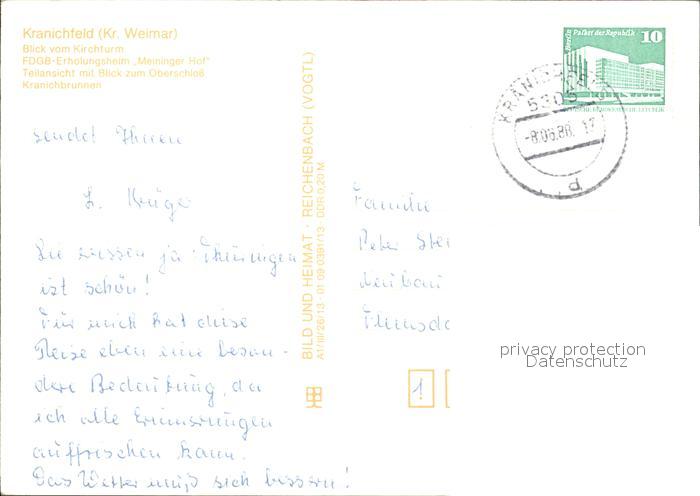 Kranichfeld (Kr. Weimar)
Blick vom Kirchturm
FDGB-Erholungsheim „Meininger Hof"
Teilansicht mit Blick zum Oberschloß
Kranichbrunnen
sendet Ihnen
L. Krüge
Sie wissen ja Thüringen
ist schön!
Für mich hat diese
Reise eben eine beson-
dere Bedeutung, da
ich alle Erinnerungen
auffrischen kann.
Das Wetter muß sich bessern!
BILD UND HEIMAT · REICHENBACH (VOGTL)
A1/III/26/13 · 01 09 0391/13 · DDR 0,20 M
Berlin Palast der Republik
10
5305
-8.06.88. 17
Familie
Peter
privacy protection
Datenschutz